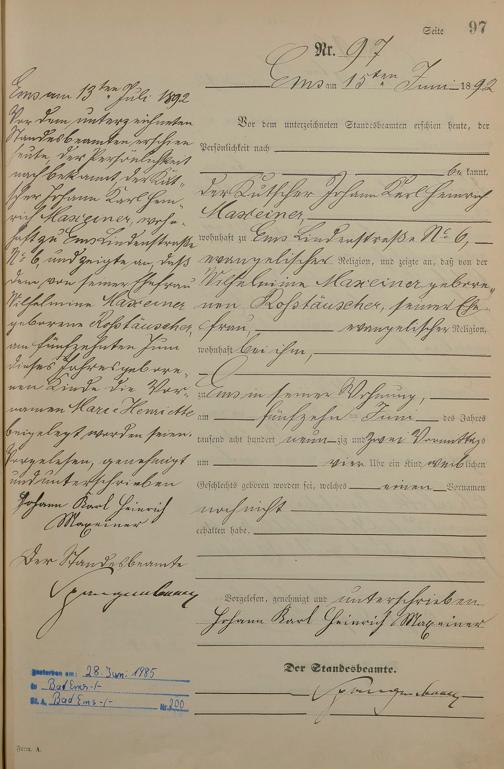 Seite 97
Nr. 97
Ems am 15ten Juni 1892
Vor dem unterzeichneten Standesbeamten erschien heute, der
Persönlichkeit nach
bekannt,
der Kutscher Johann Karl Heinrich
Maxeiner,
wohnhaft zu Ems Lindenstraße No 6,
evangelischer Religion, und zeigte an, daß von der
Wilhelmine Maxeiner gebore-
nen Roßtäuscher, seiner Ehe-
frau, evangelischer Religion,
wohnhaft bei ihm,
zu Ems in seiner Wohnung,
am fünfzehn Juni des Jahres
tausend acht hundert neunzig und zwei Vormittags
um vier Uhr ein Kind weiblichen
Geschlechts geboren worden sei, welches einen Vornamen
noch nicht
erhalten habe.
Vorgelesen, genehmigt und unterschrieben
Johann Karl Heinrich Maxeiner
Der Standesbeamte.
Spangenberg
Ems am 13ten Juli 1892
Vor dem unterzeichneten
Standesbeamten erschien
heute, der Persönlichkeit
nach bekannt, der Kut-
scher Johann Karl Hein-
rich Maxeiner, wohn-
haft zu Ems Lindenstraße
No 6, und zeigte an, daß
dem, von seiner Ehefrau
Wilhelmine Maxeiner
geborene Roßtäuscher,
am fünfzehnten Juni
dieses Jahres gebore-
nen Kinde die Vor-
namen Marie Henriette
beigelegt worden seien.
Vorgelesen, genehmigt
und unterschrieben
Johann Karl Heinrich
Maxeiner
Der Standesbeamte
Spangenberg
Gestorben am: 28. Juni 1985
in Bad Ems -/-
St. A. Bad Ems -/- Nr. 200
Form. A.